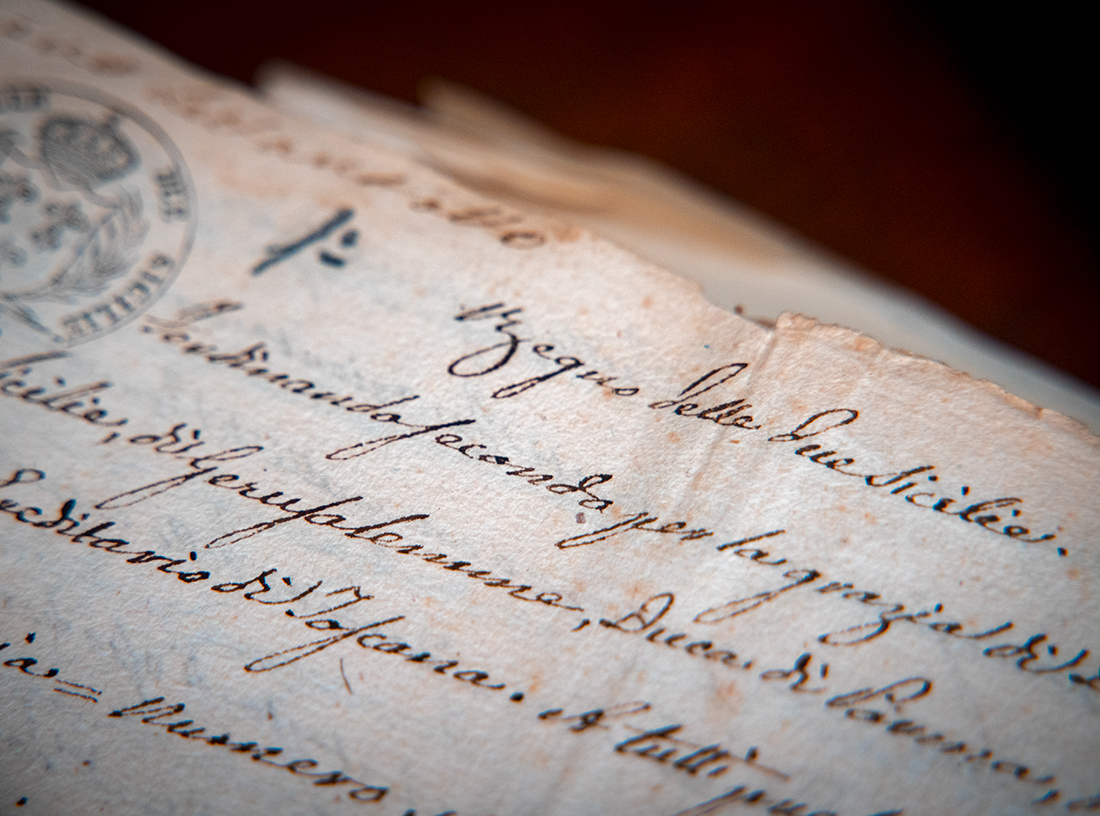 DUE
SICILIE
1:
Regno delle due Sicilie.
Ferdinando secondo per la grazia di
Sicilie, di Gerusalemme, Duca di Parma,
Ereditario di Toscana. A tutti
Numero